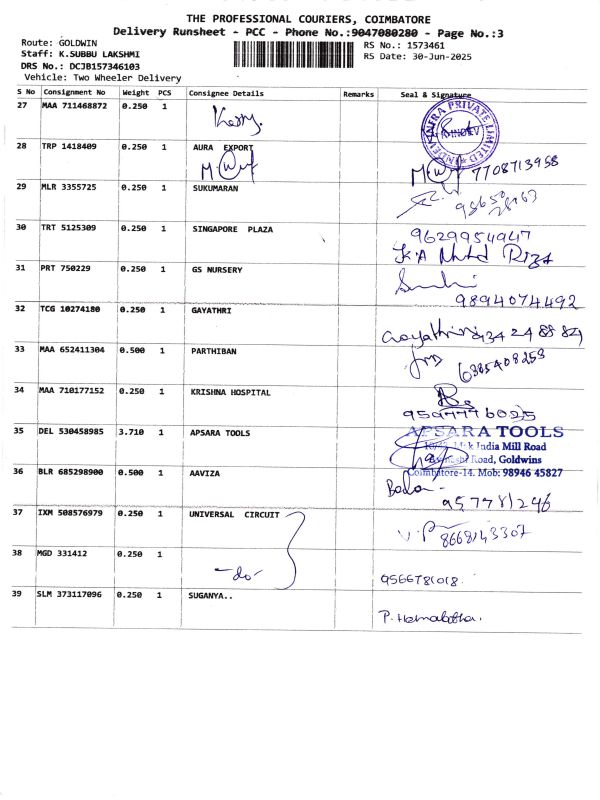 THE PROFESSIONAL COURIERS, COIMBATORE
Delivery Runsheet - PCC - Phone No.:9047080280 - Page No.:3
Route: GOLDWIN
RS No.: 1573461
Staff: K.SUBBU LAKSHMI
RS Date: 30-Jun-2025
DRS No.: DCJB157346103
Vehicle: Two Wheeler Delivery
S No Consignment No Weight PCS Consignee Details Remarks Seal & Signature
27 MAA 711468872 0.250 1
28 TRP 1418409 0.250 1 AURA EXPORT
7708713958
29 MLR 3355725 0.250 1 SUKUMARAN
30 TRT 5125309 0.250 1 SINGAPORE PLAZA
9629954947
31 PRT 750229 0.250 1 GS NURSERY
9894074492
32 TCG 10274180 0.250 1 GAYATHRI
Gayathri
33 MAA 652411304 0.500 1 PARTHIBAN
6385408253
34 MAA 710177152 0.250 1 KRISHNA HOSPITAL
35 DEL 530458985 3.710 1 APSARA TOOLS APSARA TOOLS
India Mill Road
Road, Goldwins
36 BLR 685298900 0.500 1 AAVIZA Coimbatore-14. Mob: 98946 45827
Bala
957781246
37 IXM 508576979 0.250 1 UNIVERSAL CIRCUIT
8668143307
38 MGD 331412 0.250 1
-do-
9566781018
39 SLM 373117096 0.250 1 SUGANYA..
P. Hemalatha.